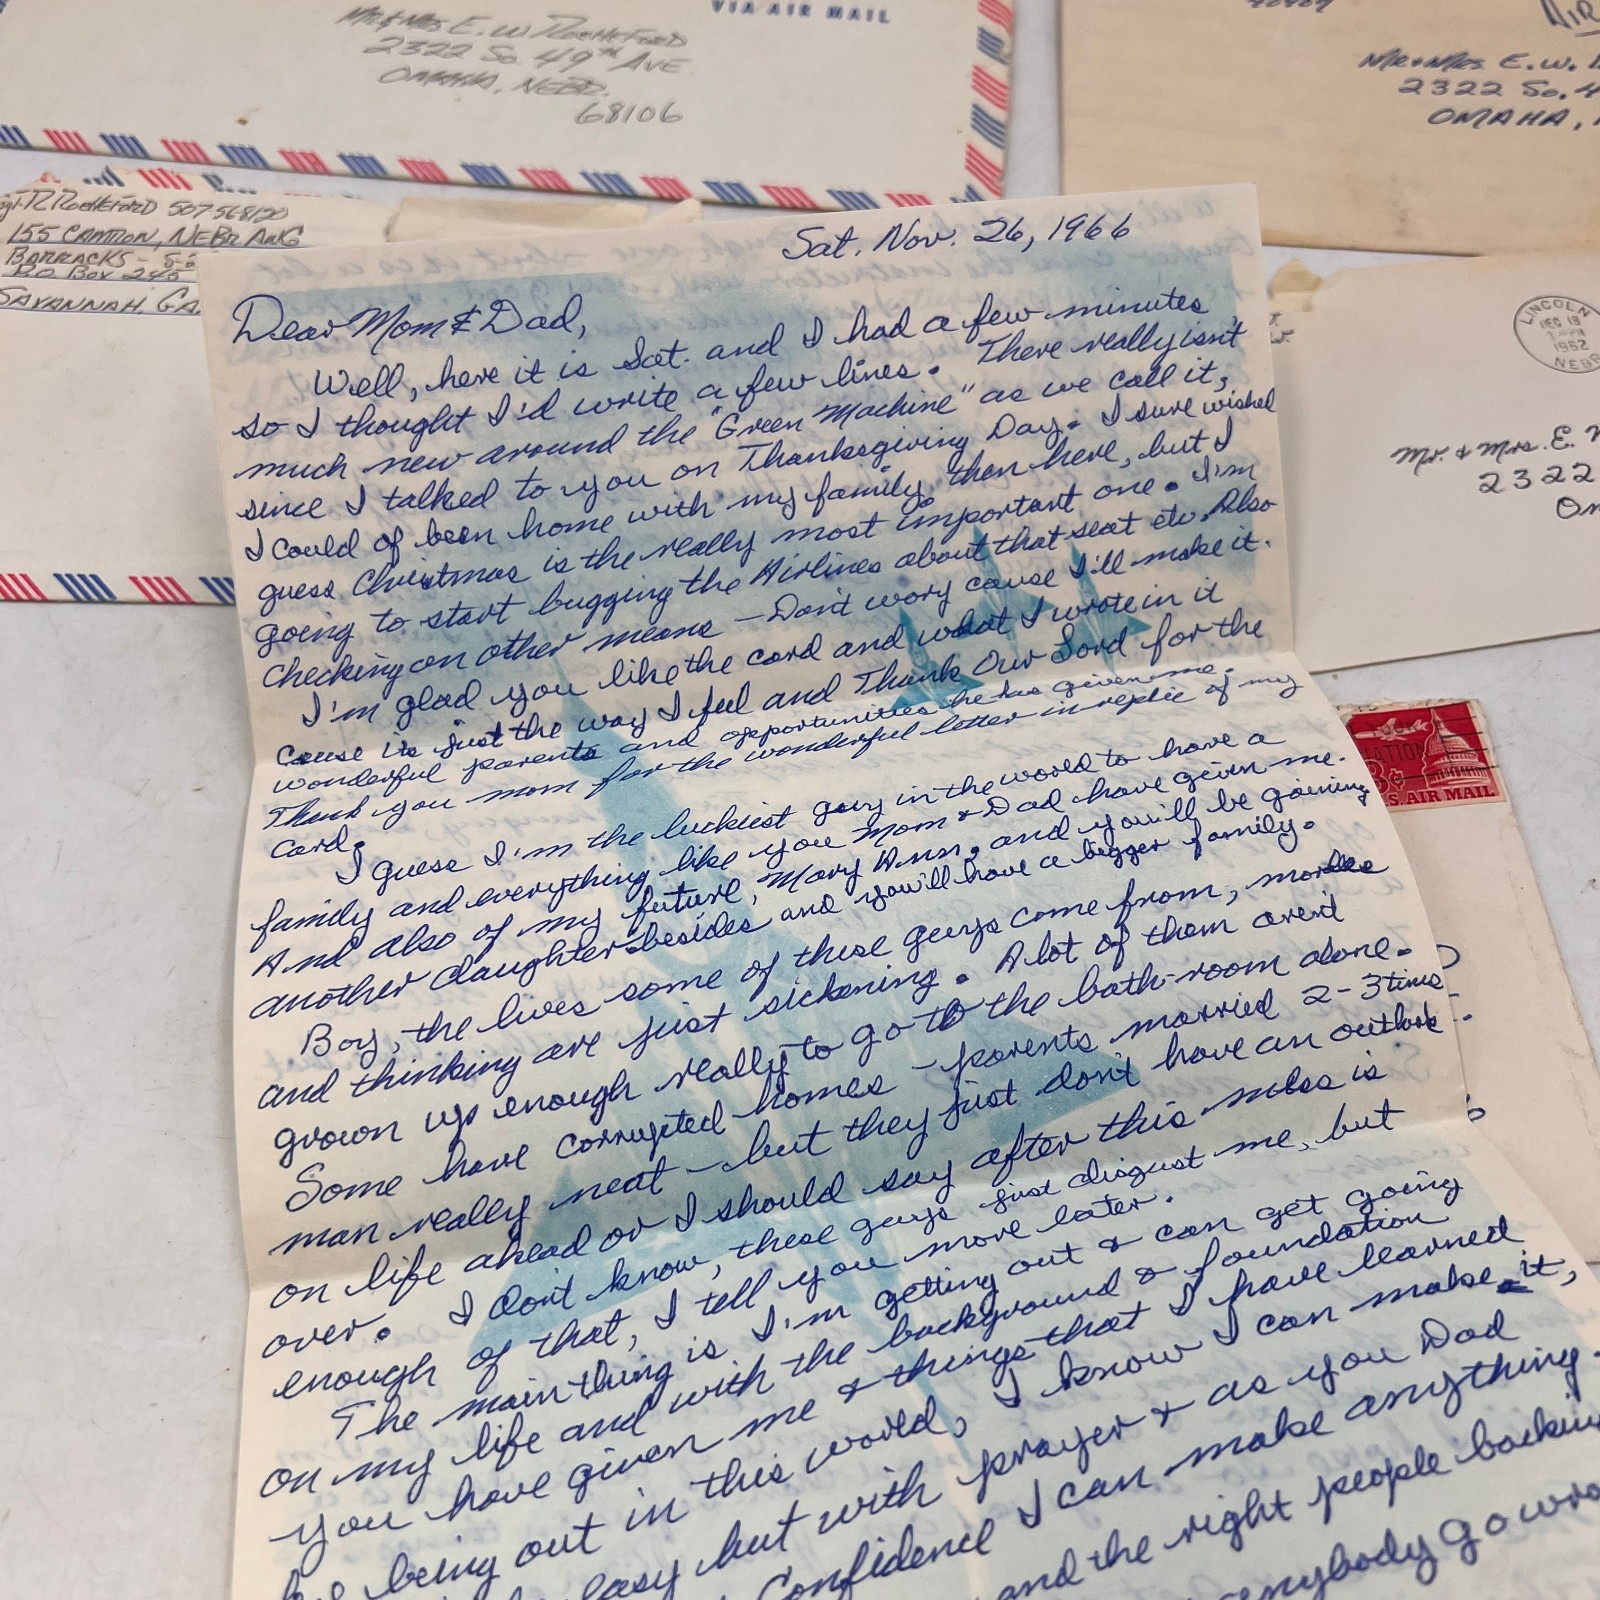 VIA AIR MAIL
Mr & Mrs E. W Rocheford
2322 So. 49th Ave
Omaha, Nebr.
68106
Air
Mr & Mrs E. W.
2322 So. 4
Omaha,
Sgt. R Rocheford 507568120
155 CAMRON, NEBR ANG
Barracks - 5-
P.O Box 245
Savannah, GA.
LINCOLN
DEC 18
1962
NEBR
Mr. & Mrs. E.
2322
Om
U.S. AIR MAIL
Sat. Nov. 26, 1966
Dear Mom & Dad,
Well, here it is Sat. and I had a few minutes
so I thought I'd write a few lines. There really isn't
much new around the "Green Machine" as we call it,
since I talked to you on Thanksgiving Day. I sure wished
I could of been home with my family then here, but I
guess Christmas is the really most important one. I'm
going to start bugging the Airlines about that seat etc. Also
checking on other means - Don't wory cause I'll make it.
I'm glad you like the card and what I wrote in it
cause its just the way I feel and Thank Our Lord for the
wonderful parents and opportunities he has given me.
Thank you mom for the wonderful letter in replie of my
card.
I guess I'm the luckiest guy in the world to have a
family and everything like you Mom & Dad have given me.
And also of my future, Mary Ann, and you'll be gaining
another daughter besides and you'll have a bigger family.
Boy, the lives some of these guys come from, morles
and thinking are just sickening. A lot of them aren't
grown up enough really to go to the bath-room alone.
Some have corrupted homes - parents married 2-3 times
man really neat - but they just don't have an outlook
on life ahead or I should say after this mess is
over. I don't know, these guys just disgust me, but
enough of that, I tell you more later.
The main thing is I'm getting out & can get going
on my life and with the background & foundation
you have given me & things that I have learned
being out in this world, I know I can make it,
easy but with prayer & as you Dad
Confidence I can make anything.
and the right people backin
anybody go wro